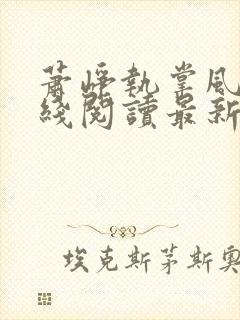 蕭崢執掌風
綫閱讀最新
埃克斯茅斯奧